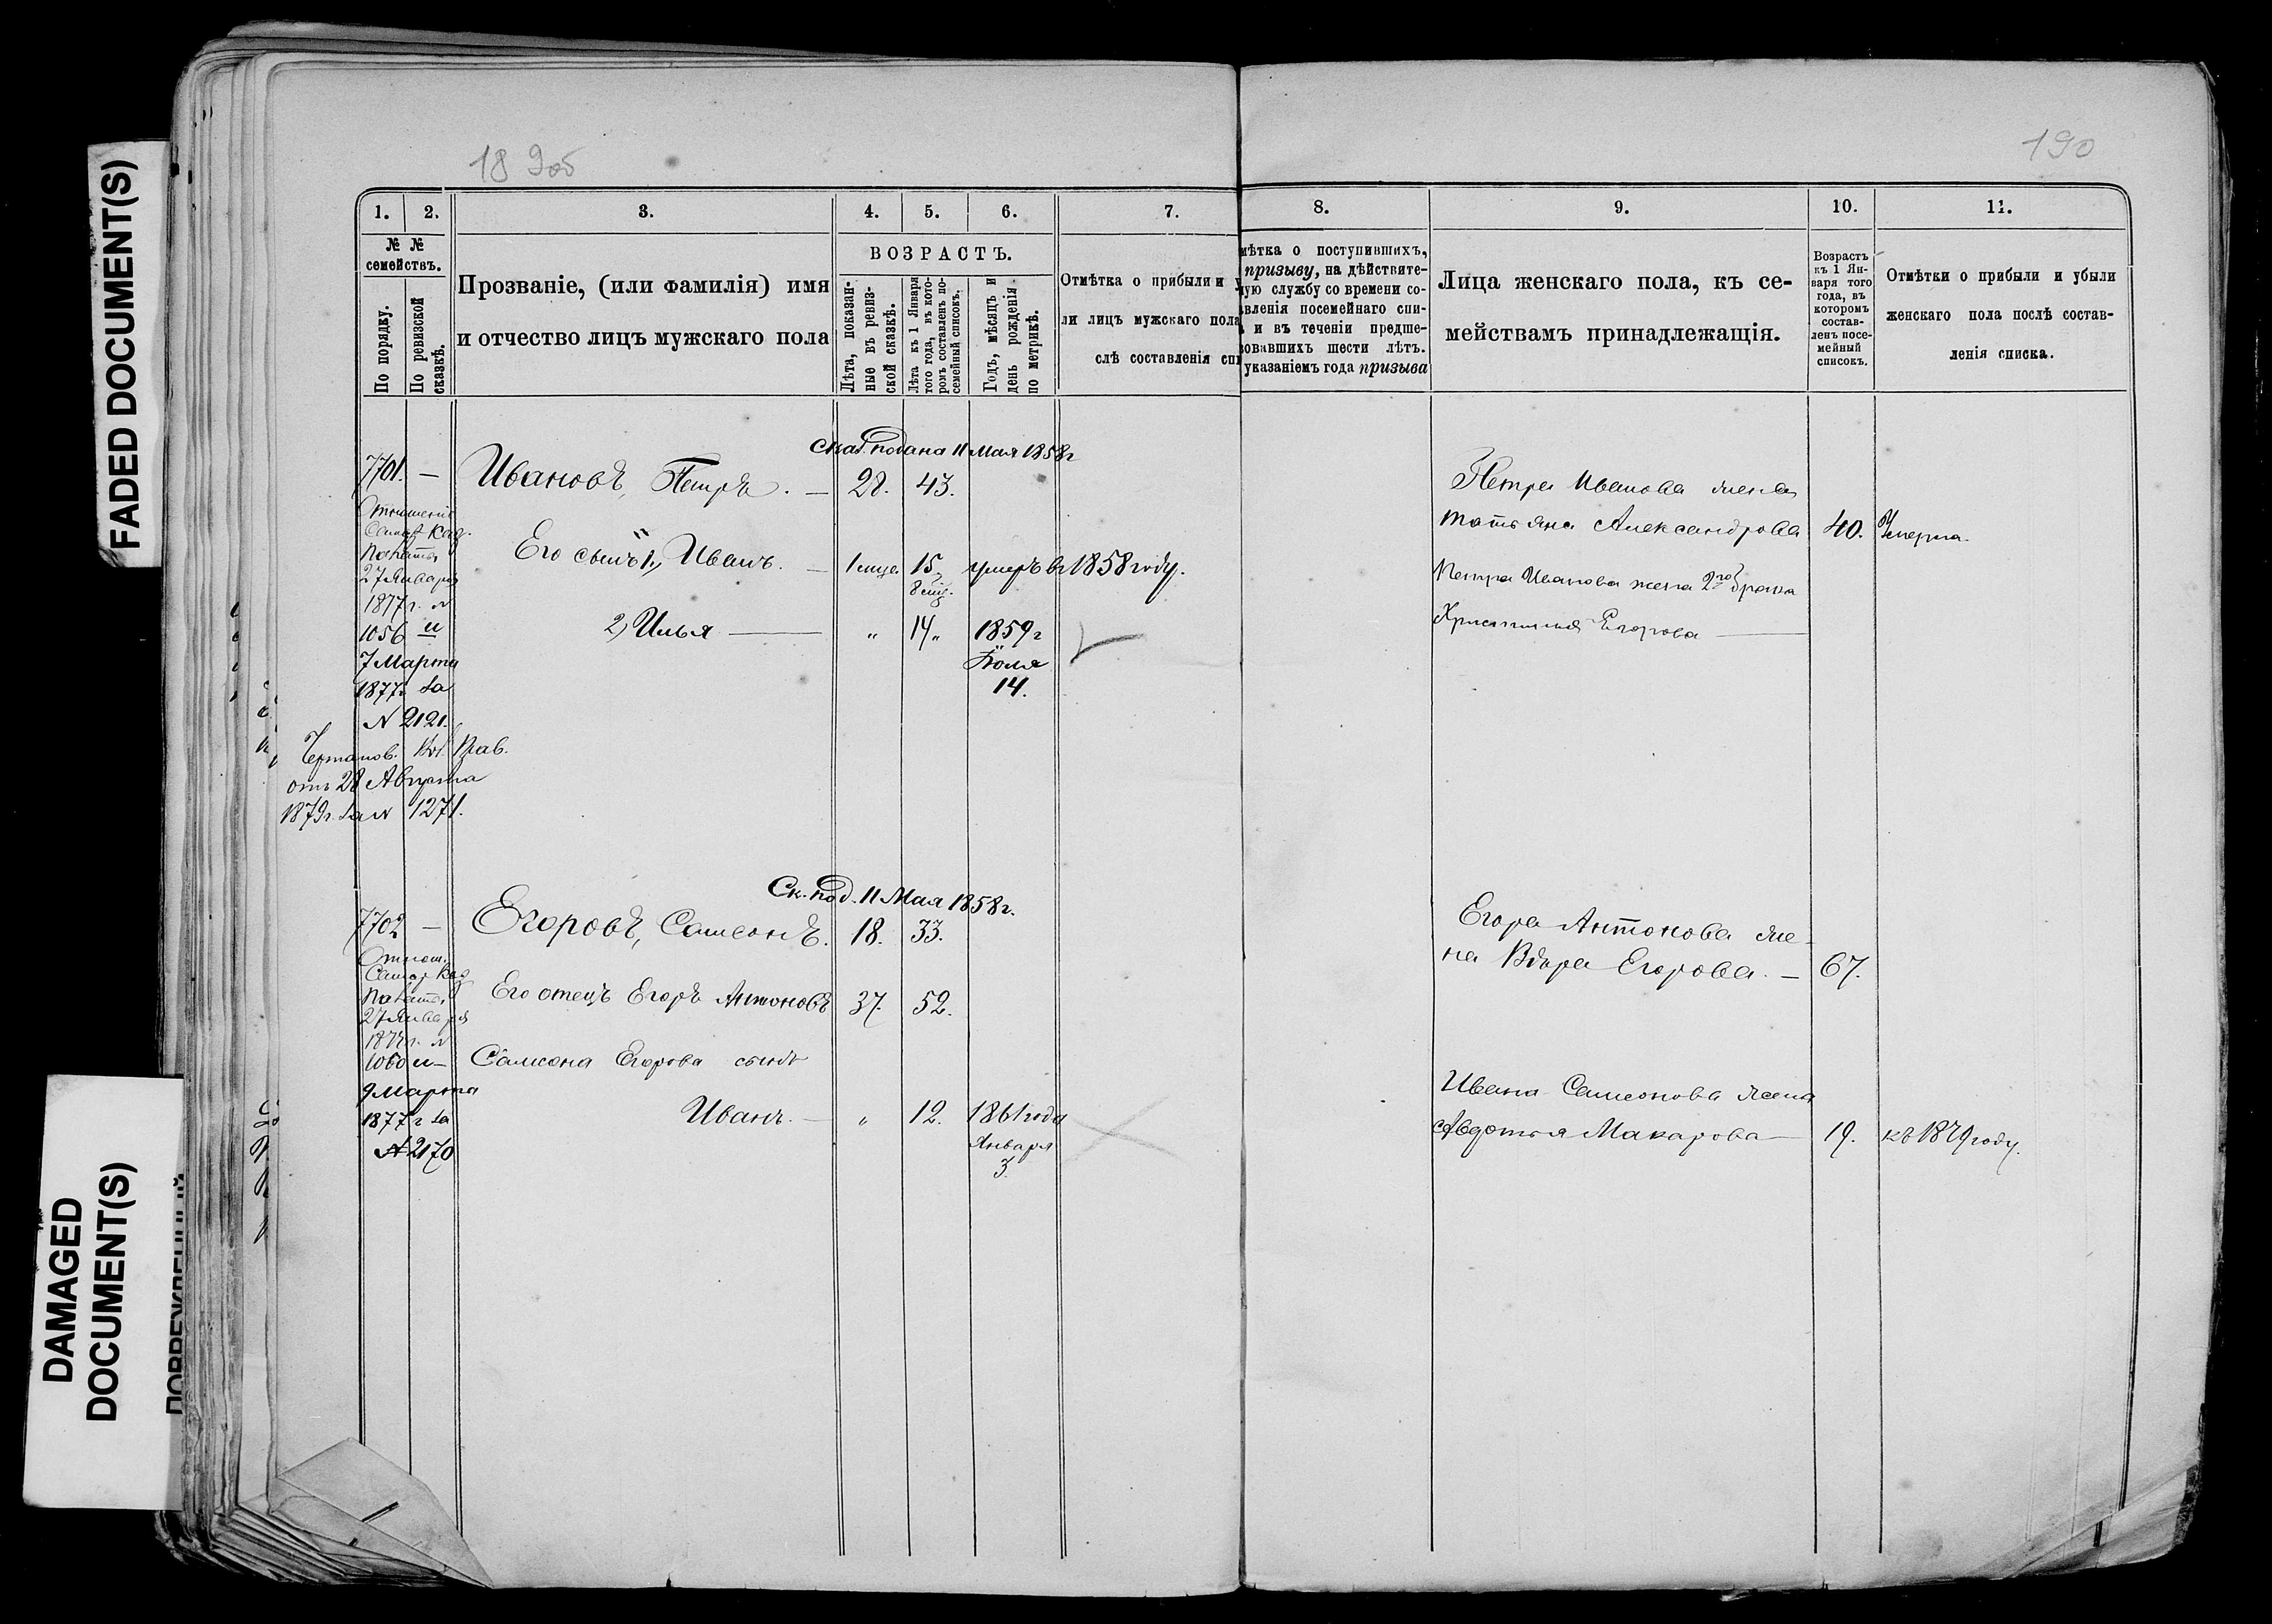 FADED DOCUMENT(S)
DAMAGED
DOCUMENT(S)
18 9об
190
1. 2. 3. 4. 5. 6. 7. 8. 9. 10. 11.
№ №
семействъ.
По порядку.
По ревизской
сказкѣ.
Прозваніе, (или фамилія) имя
и отчество лицъ мужскаго пола
ВОЗРАСТЪ.
Лѣта, показан-
ные въ ревиз-
ской сказкѣ.
Лѣта къ 1 Января
того года, въ кото-
ромъ составленъ по-
семейный списокъ.
Годъ, мѣсяцъ и
день рожденія
по метрикѣ.
Отмѣтка о прибыли и у
ли лицъ мужскаго пола
слѣ составленія спи
мѣтка о поступившихъ,
призыву, на дѣйствите-
ную службу со времени со-
вленія посемейнаго спи-
и въ теченіи предше-
вовавшихъ шести лѣтъ.
указаніемъ года призыва
Лица женскаго пола, къ се-
мействамъ принадлежащія.
Возрастъ
къ 1 Ян-
варя того
года, въ
которомъ
состав-
ленъ посе-
мейный
списокъ.
Отмѣтки о прибыли и убыли
женскаго пола послѣ состав-
ленія списка.
Сказ. подана 11 Мая 1858г
7701. — Ивановъ, Петръ. — 28. 43.
Отношеніе
Самар. Каз.
Палаты
27 Января
1877г. №
1056 и
7 Марта
1877г за
№ 2121.
Его сынъ 1, Иванъ. — 1 мца. 15, умеръ въ 1858 году.
8 мц.
2, Илья — " 14 " 1859г
Іюля
14.
Кол. Прав.
отъ 28 Августа
1879г. за № 1271.
Петра Иванова жена
Татьяна Александрова 40. Умерла.
Петра Иванова жена 2го брака
Христинья Егорова —
Ск. под. 11 Мая 1858г.
7702 — Егоровъ, Самсонъ. 18. 33.
Отнош.
Самар Каз
Палаты
27 Января
1877г. №
1060 и
9 Марта
1877г за
№ 2170
Его отецъ Егоръ Антоновъ 37. 52.
Самсона Егорова сынъ
Иванъ. — " 12. 1861 года
Января
3.
Егора Антонова же-
на Вѣра Егорова. — 67.
Ивана Самсонова жена
Авдотья Макарова — 19. къ 1879 году.